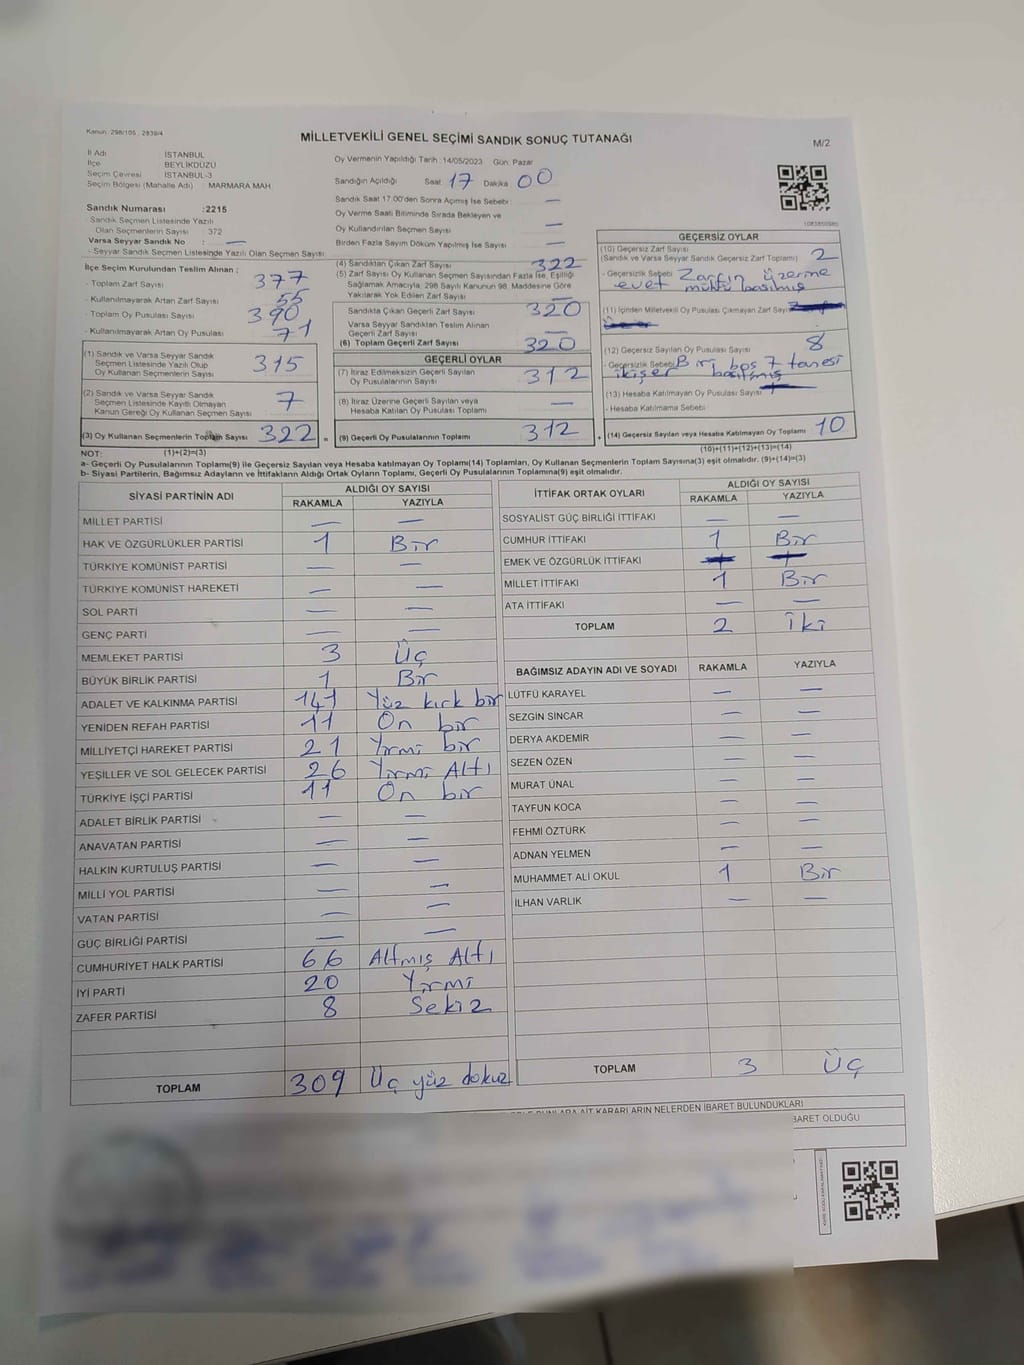 Kanun: 298/105 , 2839/4
MİLLETVEKİLİ GENEL SEÇİMİ SANDIK SONUÇ TUTANAĞI
M/2
İl Adı İSTANBUL
İlçe BEYLİKDÜZÜ
Seçim Çevresi İSTANBUL-3
Seçim Bölgesi (Mahalle Adı) : MARMARA MAH
Sandık Numarası :2215
Sandık Seçmen Listesinde Yazılı
Olan Seçmenlerin Sayısı : 372
Varsa Seyyar Sandık No : —
- Seyyar Sandık Seçmen Listesinde Yazılı Olan Seçmen Sayısı :
İlçe Seçim Kurulundan Teslim Alınan ;
- Toplam Zarf Sayısı 377
- Kullanılmayarak Artan Zarf Sayısı 55
- Toplam Oy Pusulası Sayısı 390
- Kullanılmayarak Artan Oy Pusulası 71
(1) Sandık ve Varsa Seyyar Sandık
Seçmen Listesinde Yazılı Olup
Oy Kullanan Seçmenlerin Sayısı 315
(2) Sandık ve Varsa Seyyar Sandık
Seçmen Listesinde Kayıtlı Olmayan
Kanun Gereği Oy Kullanan Seçmen Sayısı 7
(3) Oy Kullanan Seçmenlerin Toplam Sayısı 322 =
Oy Vermenin Yapıldığı Tarih :14/05/2023 Gün: Pazar
Sandığın Açıldığı Saat 17 Dakika 00
Sandık Saat 17:00'den Sonra Açılmış İse Sebebi : —
Oy Verme Saati Bitiminde Sırada Bekleyen ve
Oy Kullandırılan Seçmen Sayısı —
Birden Fazla Sayım Döküm Yapılmış İse Sayısı —
(4) Sandıktan Çıkan Zarf Sayısı 322
(5) Zarf Sayısı Oy Kullanan Seçmen Sayısından Fazla İse, Eşitliği
Sağlamak Amacıyla; 298 Sayılı Kanunun 98. Maddesine Göre
Yakılarak Yok Edilen Zarf Sayısı —
Sandıkta Çıkan Geçerli Zarf Sayısı 320
Varsa Seyyar Sandıktan Teslim Alınan
Geçerli Zarf Sayısı —
(6) Toplam Geçerli Zarf Sayısı 320
GEÇERLİ OYLAR
(7) İtiraz Edilmeksizin Geçerli Sayılan
Oy Pusulalarının Sayısı 312
(8) İtiraz Üzerine Geçerli Sayılan veya
Hesaba Katılan Oy Pusulası Toplamı —
(9) Geçerli Oy Pusulalarının Toplamı 312 +
1083850980
GEÇERSİZ OYLAR
(10) Geçersiz Zarf Sayısı
(Sandık ve Varsa Seyyar Sandık Geçersiz Zarf Toplamı) 2
- Geçersizlik Sebebi Zarfın üzerine
evet mühürü basılmış
(11) İçinden Milletvekili Oy Pusulası Çıkmayan Zarf Sayısı
(12) Geçersiz Sayılan Oy Pusulası Sayısı 8
- Geçersizlik Sebebi Biri boş 7 tanesi
ikişer basılmış
(13) Hesaba Katılmayan Oy Pusulası Sayısı
- Hesaba Katılmama Sebebi
(14) Geçersiz Sayılan veya Hesaba Katılmayan Oy Toplamı 10
NOT: (1)+(2)=(3)
(10)+(11)+(12)+(13)=(14)
a- Geçerli Oy Pusulalarının Toplamı(9) ile Geçersiz Sayılan veya Hesaba katılmayan Oy Toplamı(14) Toplamları, Oy Kullanan Seçmenlerin Toplam Sayısına(3) eşit olmalıdır. (9)+(14)=(3)
b- Siyasi Partilerin, Bağımsız Adayların ve İttifakların Aldığı Ortak Oyların Toplamı, Geçerli Oy Pusulalarının Toplamına(9) eşit olmalıdır.
SİYASİ PARTİNİN ADI ALDIĞI OY SAYISI
RAKAMLA YAZIYLA
MİLLET PARTİSİ — —
HAK VE ÖZGÜRLÜKLER PARTİSİ 1 Bir
TÜRKİYE KOMÜNİST PARTİSİ — —
TÜRKİYE KOMÜNİST HAREKETİ — —
SOL PARTİ — —
GENÇ PARTİ — —
MEMLEKET PARTİSİ 3 Üç
BÜYÜK BİRLİK PARTİSİ 1 Bir
ADALET VE KALKINMA PARTİSİ 141 Yüz kırk bir
YENİDEN REFAH PARTİSİ 11 On bir
MİLLİYETÇİ HAREKET PARTİSİ 21 Yirmi bir
YEŞİLLER VE SOL GELECEK PARTİSİ 26 Yirmi Altı
TÜRKİYE İŞÇİ PARTİSİ 11 On bir
ADALET BİRLİK PARTİSİ — —
ANAVATAN PARTİSİ — —
HALKIN KURTULUŞ PARTİSİ — —
MİLLİ YOL PARTİSİ — —
VATAN PARTİSİ — —
GÜÇ BİRLİĞİ PARTİSİ — —
CUMHURİYET HALK PARTİSİ 66 Altmış Altı
İYİ PARTİ 20 Yirmi
ZAFER PARTİSİ 8 Sekiz
TOPLAM 309 Üç yüz dokuz
İTTİFAK ORTAK OYLARI ALDIĞI OY SAYISI
RAKAMLA YAZIYLA
SOSYALİST GÜÇ BİRLİĞİ İTTİFAKI — —
CUMHUR İTTİFAKI 1 Bir
EMEK VE ÖZGÜRLÜK İTTİFAKI
MİLLET İTTİFAKI 1 Bir
ATA İTTİFAKI — —
TOPLAM 2 İki
BAĞIMSIZ ADAYIN ADI VE SOYADI RAKAMLA YAZIYLA
LÜTFÜ KARAYEL — —
SEZGİN SİNCAR — —
DERYA AKDEMİR — —
SEZEN ÖZEN — —
MURAT ÜNAL — —
TAYFUN KOCA — —
FEHMİ ÖZTÜRK — —
ADNAN YELMEN — —
MUHAMMET ALİ OKUL 1 Bir
İLHAN VARLIK — —
TOPLAM 3 ÜÇ
BUNLARA AİT KARARLARIN NELERDEN İBARET BULUNDUKLARI
BARET OLDUĞU